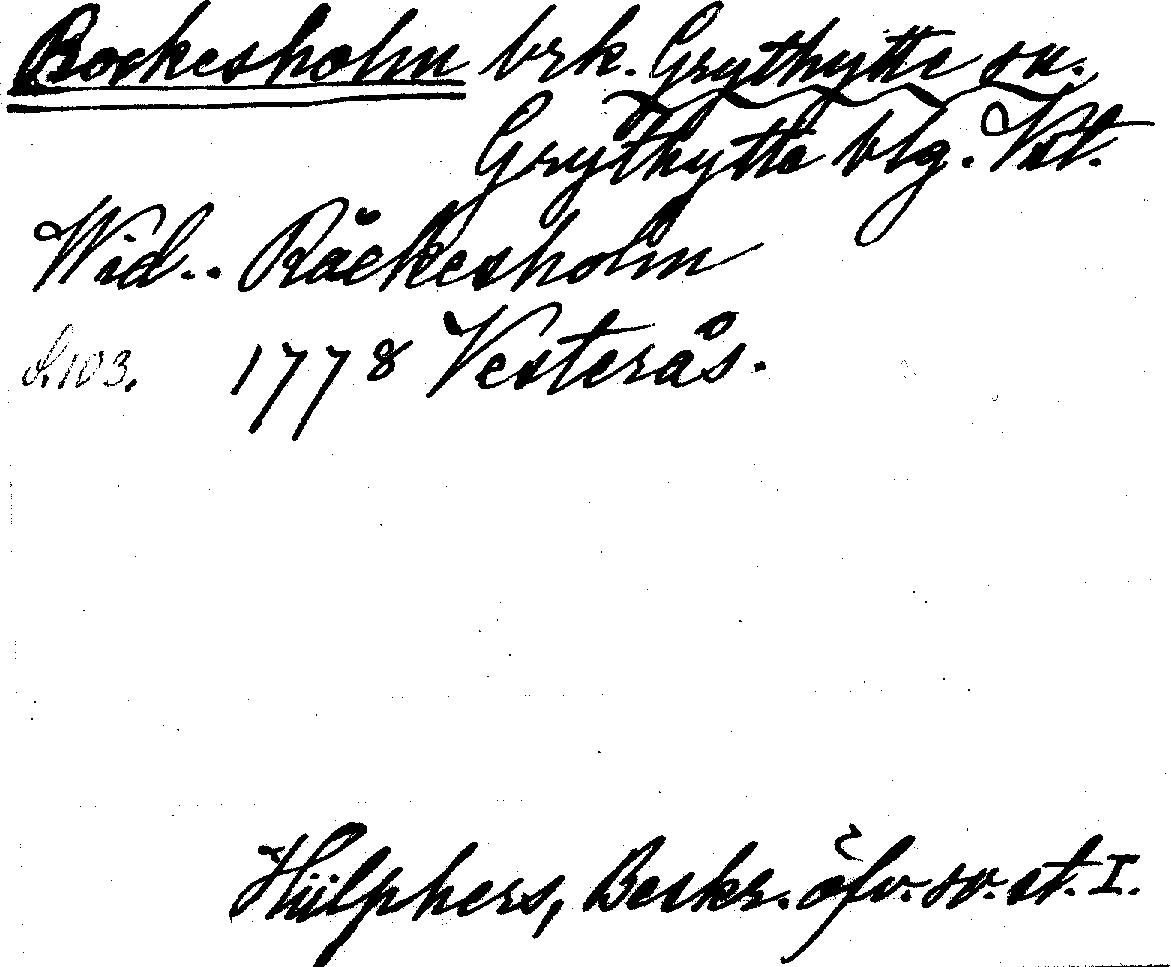 Bockesholm brk. Grythytte sn.
Grythytte blg. Vstl.
Wid.. Räckesholm
S. 103. 1778 Vesterås.
Hülphers, Beskr. öfv. sv. st. I.